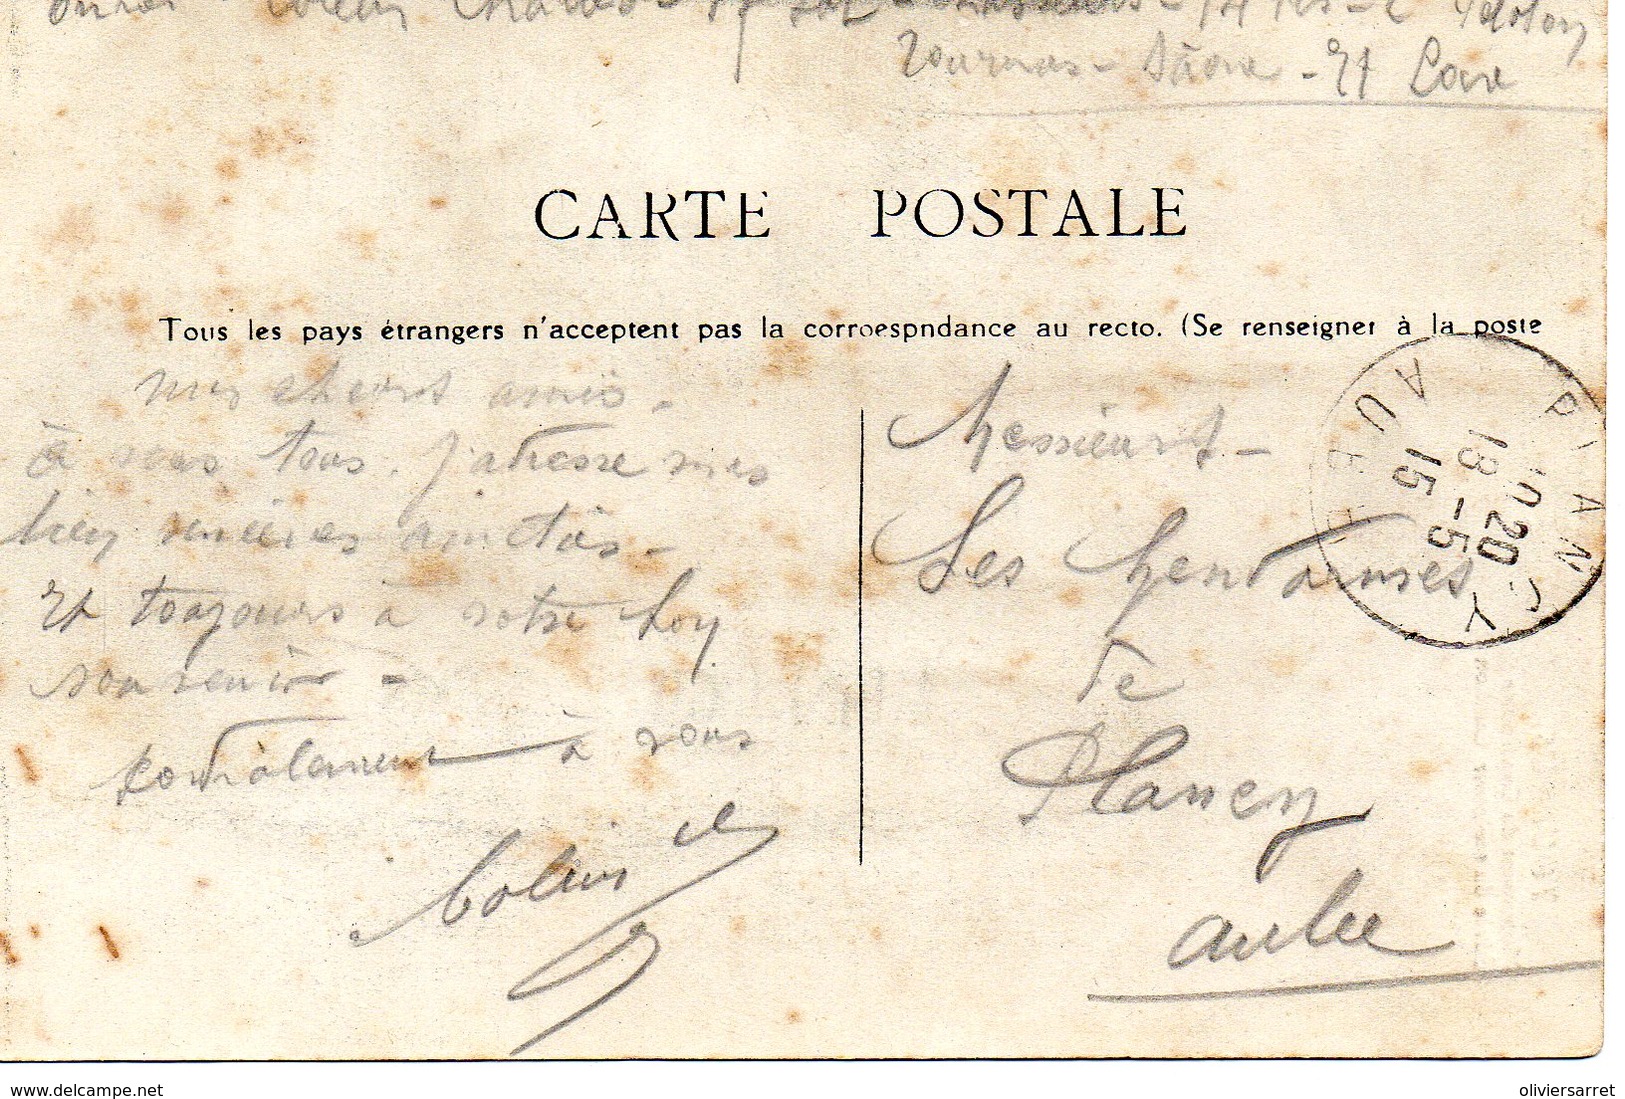 Tournus - Saône - Et Loire
CARTE POSTALE
Tous les pays étrangers n'acceptent pas la corroespndance au recto. (Se renseigner à la poste
mes chers amis -
à vous tous. j'adresse mes
bien sincères amitiés -
Et toujours à votre bon
souvenir -
cordialement à vous
Colin
Messieurs -
Les Gendarmes
de
Plancy
aube
PLANCY
18 10 20
15 -5
AUBE
www.delcampe.net
oliviersarret